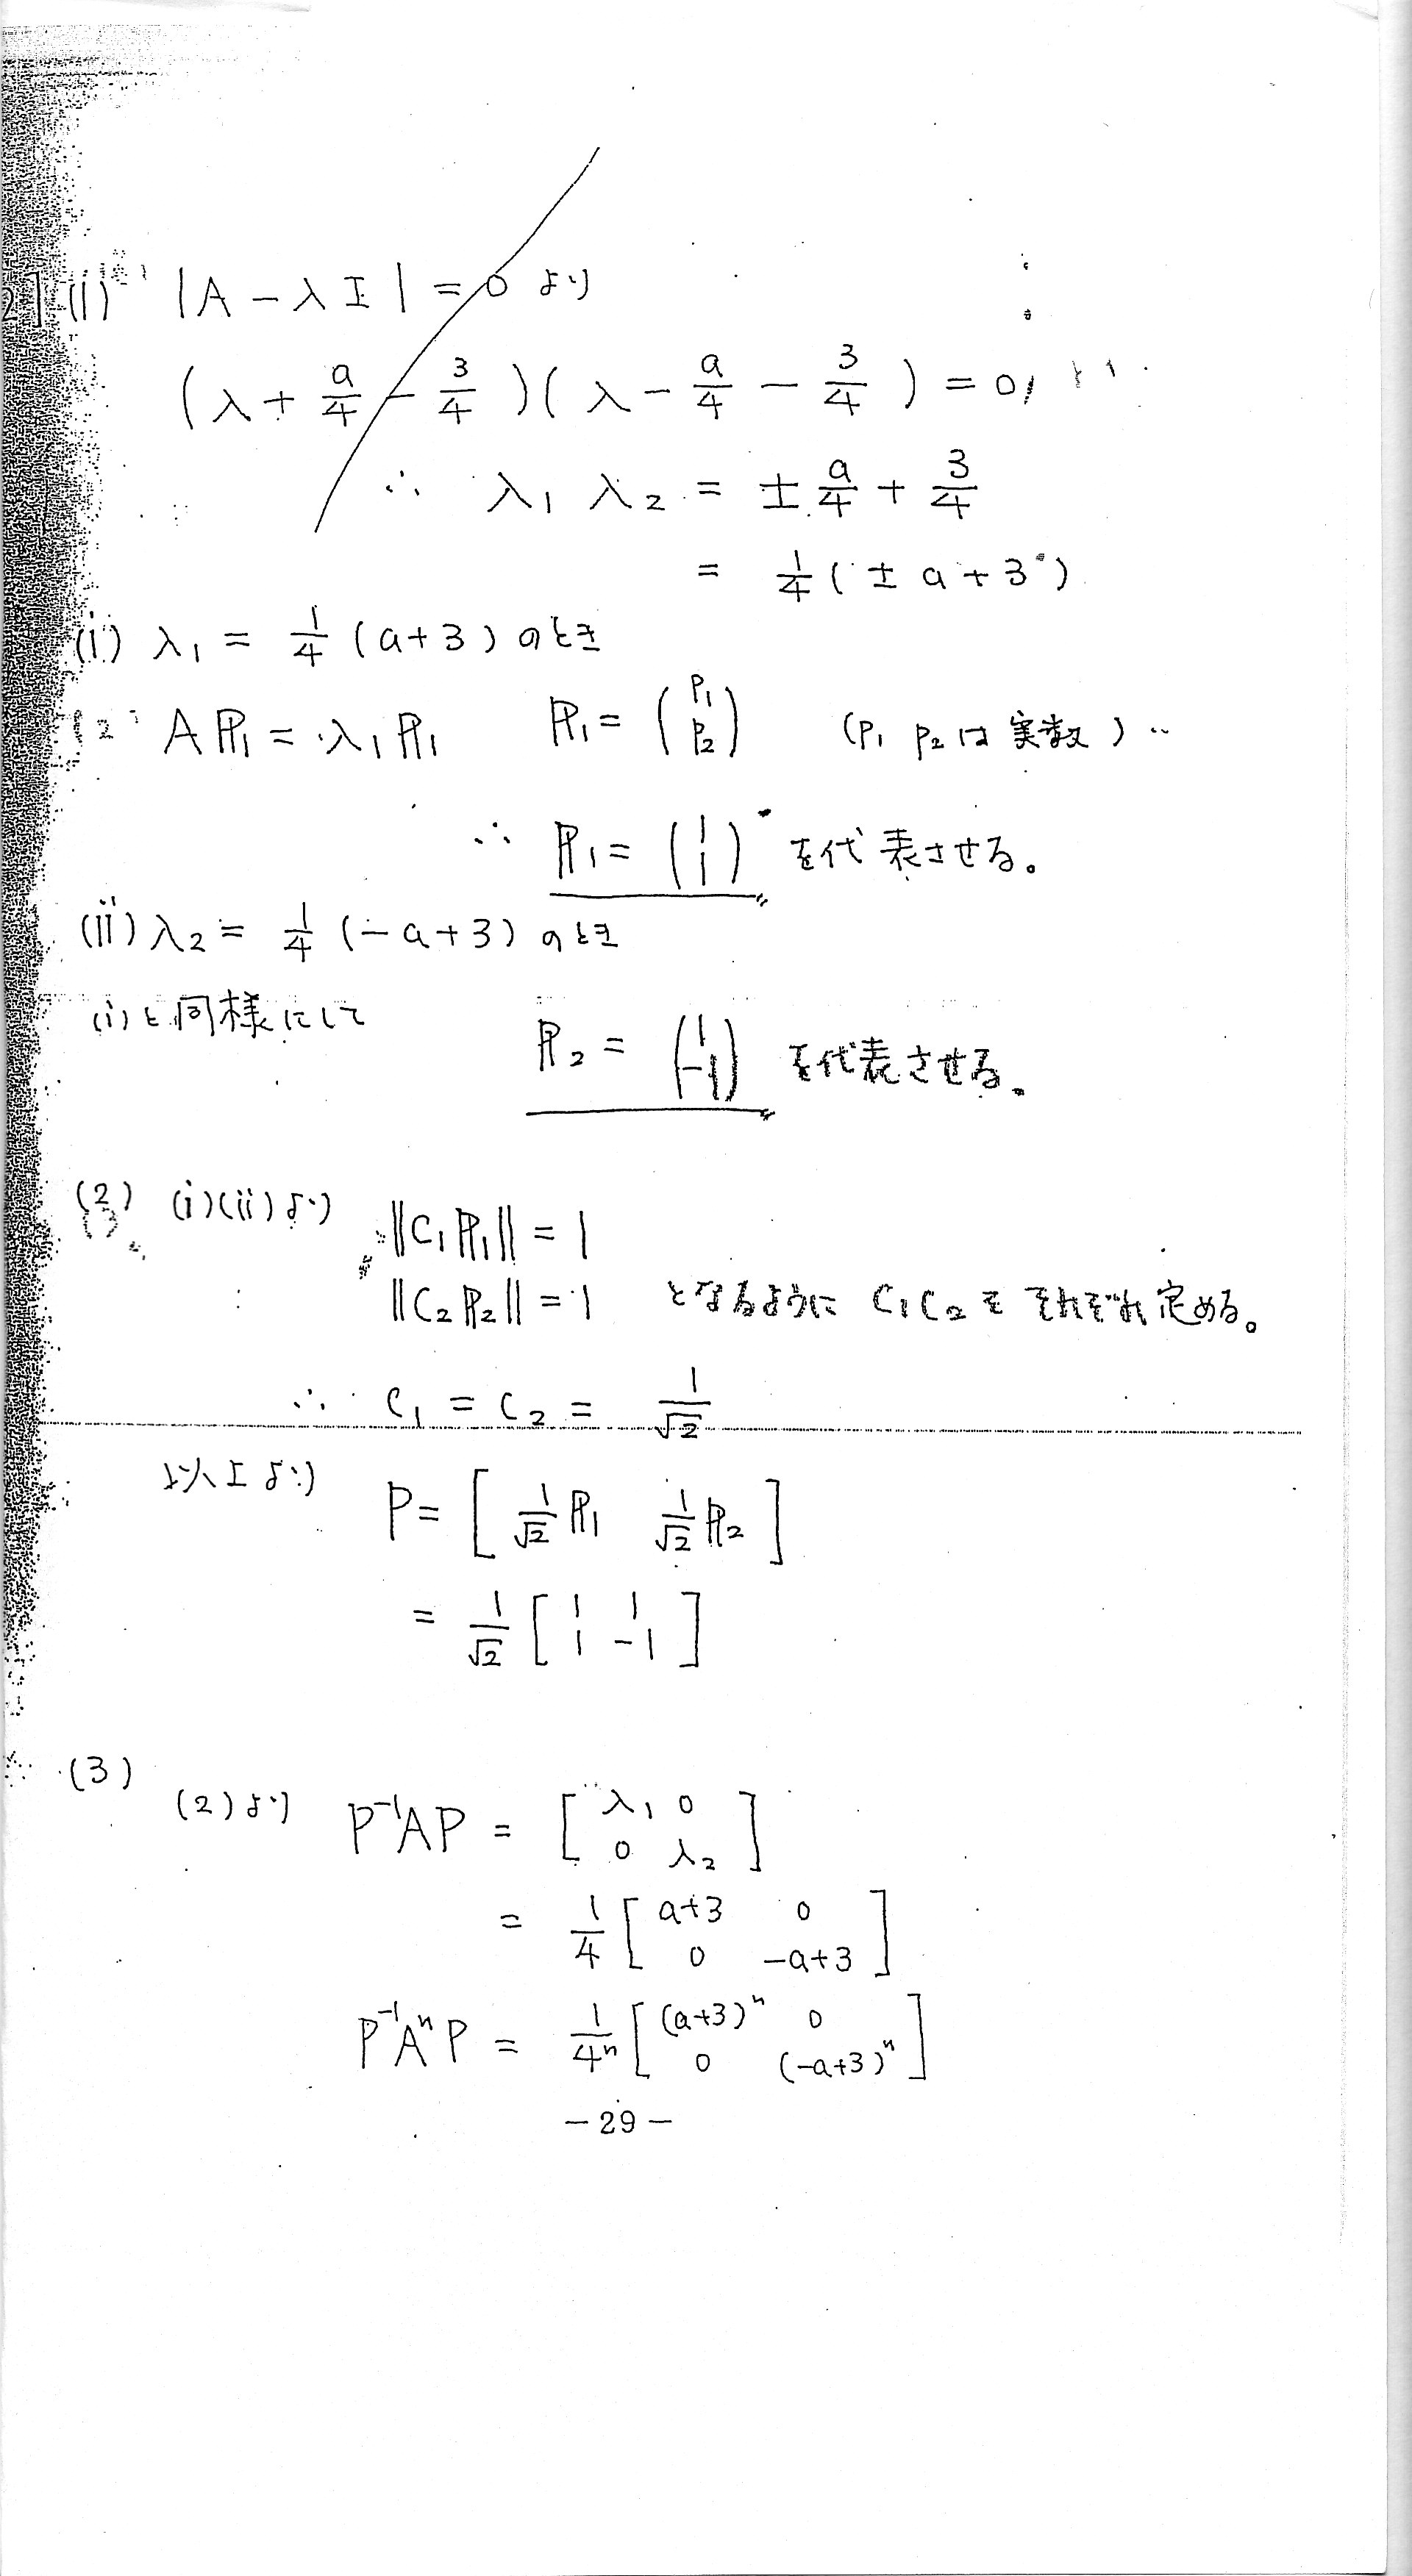 2] (1) |A − λI| = 0 より
(λ + a/4 − 3/4)(λ − a/4 − 3/4) = 0,
∴ λ₁ λ₂ = ± a/4 + 3/4
= 1/4 (± a + 3)
(i) λ₁ = 1/4 (a+3) のとき
Aℙ₁ = λ₁ℙ₁ ℙ₁ = (p₁ p₂) (p₁ p₂は実数)
∴ ℙ₁ = (1 1) を代表させる。
(ii) λ₂ = 1/4 (−a+3) のとき
(i)と同様にして
ℙ₂ = (1 −1) を代表させる。
(2) (i)(ii)より ‖C₁ℙ₁‖ = 1
‖C₂ℙ₂‖ = 1 となるように C₁C₂を それぞれ定める。
∴ C₁ = C₂ = 1/√2
以上より P = [1/√2 ℙ₁ 1/√2 ℙ₂]
= 1/√2 [1 1 1 −1]
(3)
(2)より P⁻¹AP = [λ₁ 0 0 λ₂]
= 1/4 [a+3 0 0 −a+3]
P⁻¹AⁿP = 1/4ⁿ [(a+3)ⁿ 0 0 (−a+3)ⁿ]
−29−